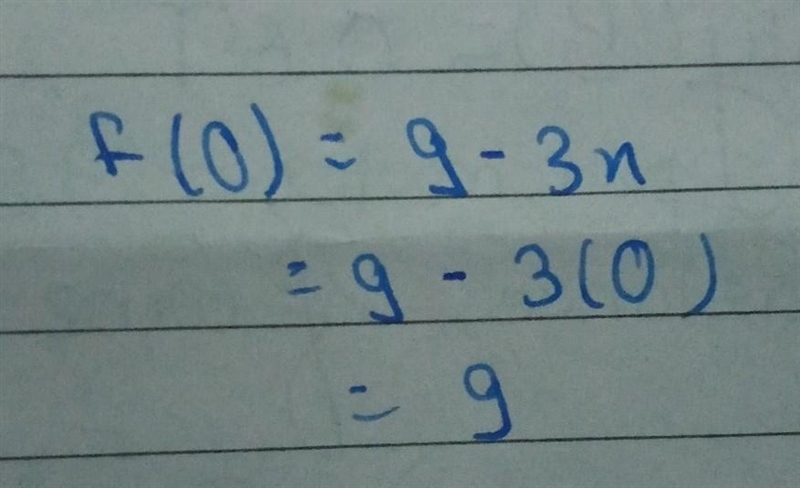 f(0) = 9 - 3x
= 9 - 3(0)
= 9